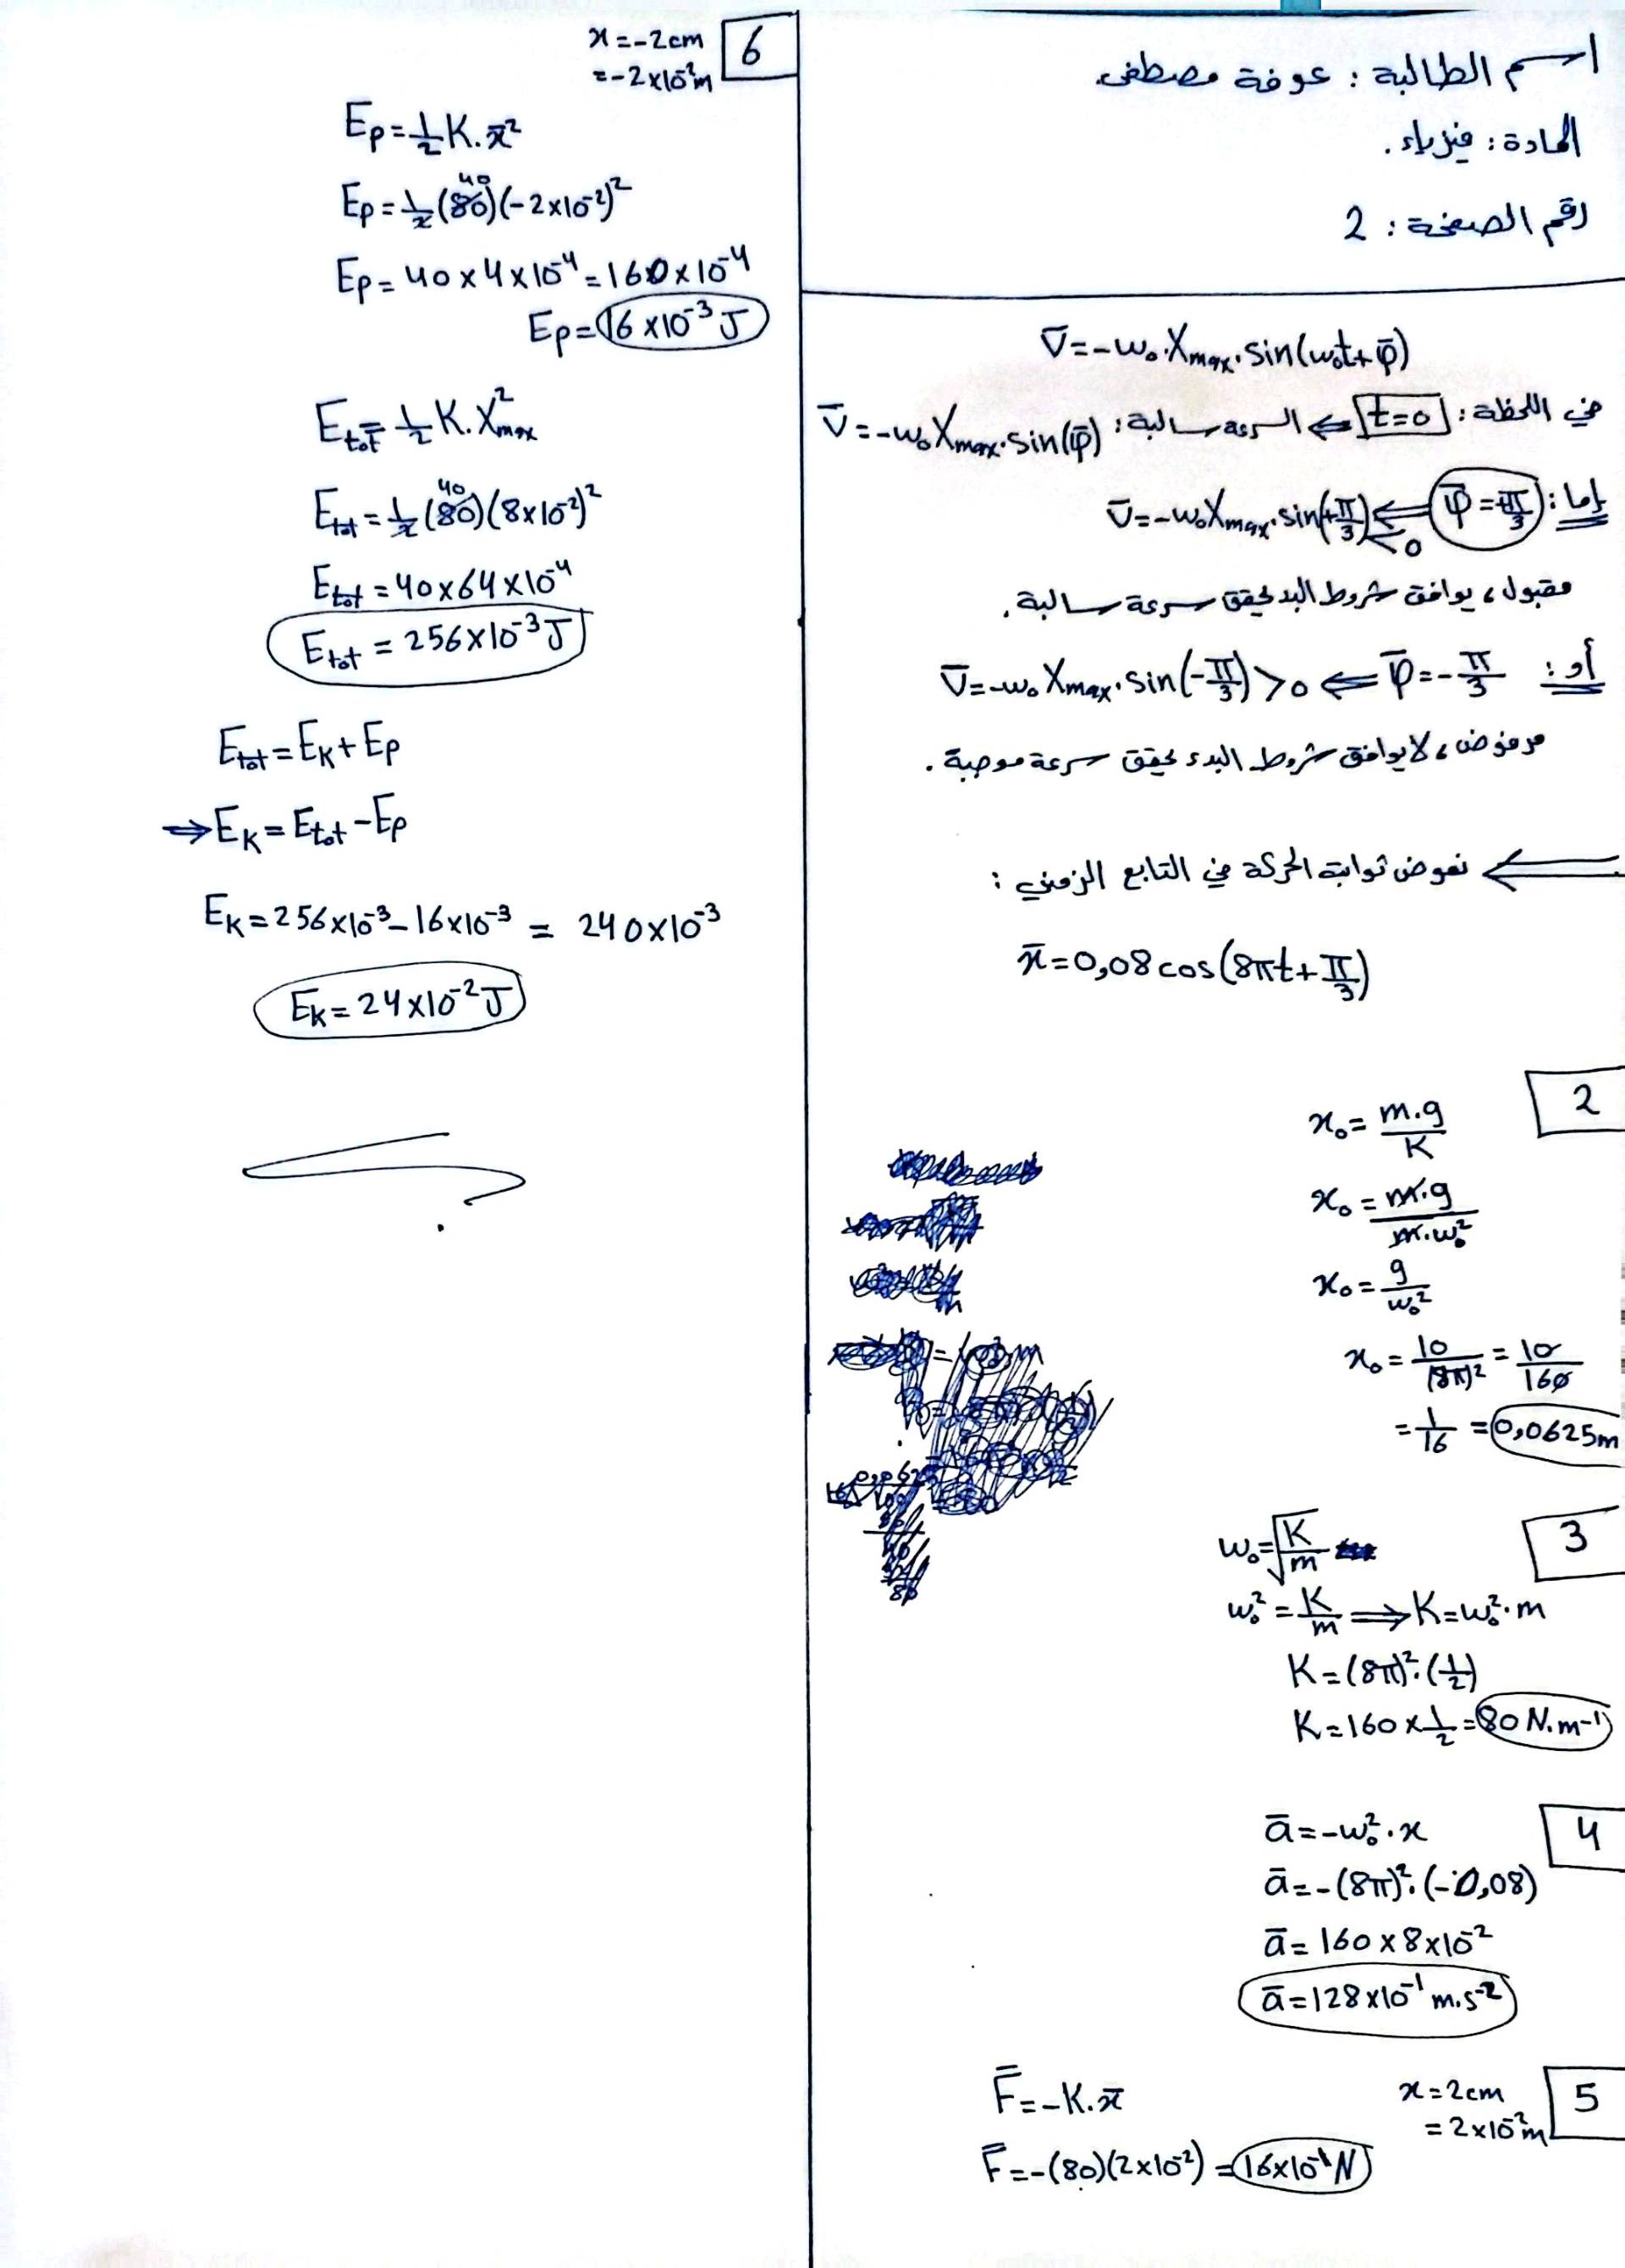 اسم الطالبة : عوفة مصطفى
المادة : فيزياء .
رقم الصفحة : 2
v̄ = -ω₀.Xmax.sin(ω₀t+φ̄)
في اللحظة : t=0 ⇐ السرعة سالبة : v̄ = -ω₀Xmax.sin(φ̄)
إما : φ̄ = +π/3 ⇐ v̄ = -ω₀Xmax.sin(+π/3) < 0
مقبول، يوافق شروط البدء يحقق سرعة سالبة .
أو : φ̄ = -π/3 ⇐ v̄ = -ω₀Xmax.sin(-π/3) > 0
مرفوض، لا يوافق شروط البدء يحقق سرعة موجبة .
⇐ نعوض ثوابت الحركة في التابع الزمني :
x̄ = 0,08 cos(8πt+π/3)
2
x₀ = m.g/K
x₀ = m.g/m.ω₀²
x₀ = g/ω₀²
x₀ = 10/(8π)² = 10/160
= 1/16 = 0,0625m
3
ω₀ = √(K/m)
ω₀² = K/m ⇒ K = ω₀².m
K = (8π)².(1/2)
K = 160 × 1/2 = 80 N.m⁻¹
4
ā = -ω₀².x
ā = -(8π)².(-0,08)
ā = 160 × 8×10⁻²
ā = 128×10⁻¹ m.s⁻²
5
x = 2cm
= 2×10⁻²m
F̄ = -K.x̄
F̄ = -(80)(2×10⁻²) = 16×10⁻¹N
6
x = -2cm
= -2×10⁻²m
Ep = 1/2 K.x̄²
40
Ep = 1/2 (80)(-2×10⁻²)²
Ep = 40 × 4×10⁻⁴ = 160×10⁻⁴
Ep = 16×10⁻³ J
Etot = 1/2 K.X²max
40
Etot = 1/2 (80)(8×10⁻²)²
Etot = 40×64×10⁻⁴
Etot = 256×10⁻³ J
Etot = EK + Ep
⇒ EK = Etot - Ep
EK = 256×10⁻³ - 16×10⁻³ = 240×10⁻³
EK = 24×10⁻² J